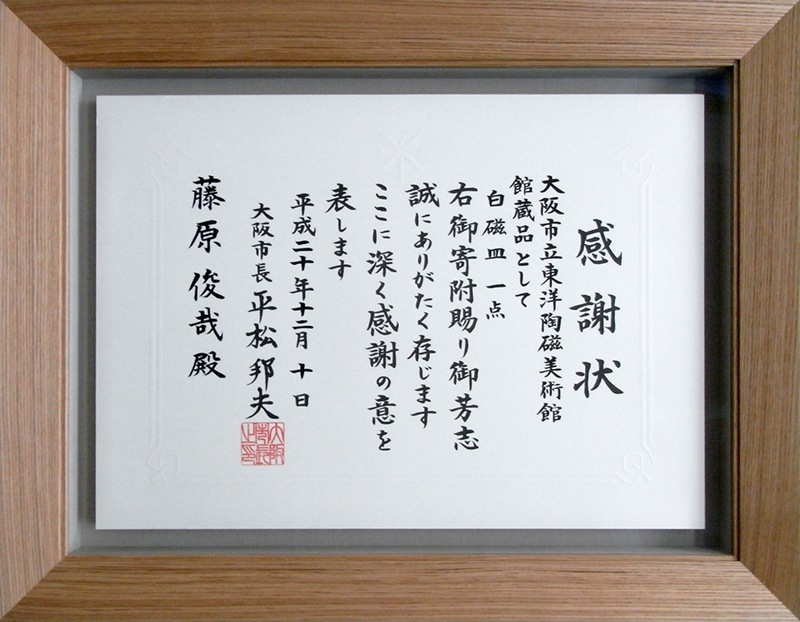 感謝状
大阪市立東洋陶磁美術館
館蔵品として
白磁皿 一点
右御寄附賜り御芳志
誠にありがたく存じます
ここに深く感謝の意を
表します
平成二十年十二月 十 日
大阪市長 平松邦夫
大阪市長之印
藤原俊哉殿